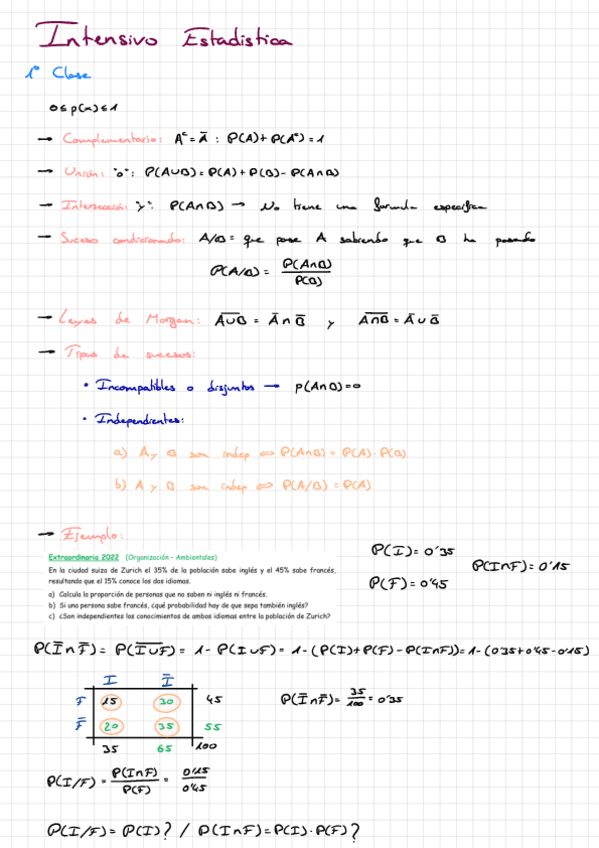 Intensivo Estadistica
1º Clase
0≤p(x)≤1
→ Complementario: Aᶜ = A̅ : P(A)+P(Aᶜ)=1
→ Unión: "o": P(A∪B)=P(A)+P(B)-P(A∩B)
→ Intersección: "y": P(A∩B) → No tiene una formula especifica
→ Suceso condicionado: A/B = que pase A sabiendo que B ha pasado
P(A/B) = P(A∩B)/P(B)
→ Leyes de Morgan: A̅∪̅B̅ = A̅ ∩ B̅ y A̅∩̅B̅ = A̅ ∪ B̅
→ Tipos de sucesos:
• Incompatibles o disjuntos → p(A∩B)=0
• Independientes:
a) A y B son indep ⇔ P(A∩B)=P(A)·P(B)
b) A y B son indep ⇔ P(A/B)=P(A)
→ Ejemplo:
Extraordinaria 2022 (Organización – Ambientales)
En la ciudad suiza de Zurich el 35% de la población sabe inglés y el 45% sabe francés,
resultando que el 15% conoce los dos idiomas.
a) Calcula la proporción de personas que no saben ni inglés ni francés.
b) Si una persona sabe francés, ¿qué probabilidad hay de que sepa también inglés?
c) ¿Son independientes los conocimientos de ambos idiomas entre la población de Zurich?
P(I)=0'35
P(I∩F)=0'15
P(F)=0'45
P(I̅∩F̅)=P(I̅∪̅F̅)=1-P(I∪F)=1-(P(I)+P(F)-P(I∩F))=1-(0'35+0'45-0'15)
I I̅
F 15 30 45
F̅ 20 35 55
35 65 100
P(I̅∩F̅)=35/100=0'35
P(I/F)=P(I∩F)/P(F)=0'15/0'45
P(I/F)=P(I)? / P(I∩F)=P(I)·P(F)?